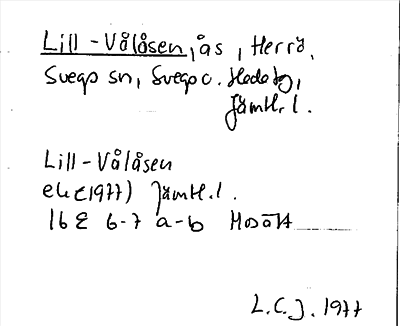 Lill-Vålåsen, ås, Herrö,
Svegs sn, Svegs o. Hede tg,
Jämtl. l.
Lill-Vålåsen
ek (1977) Jämtl. l.
16 E 6-7 a-b
L.C.J. 1977